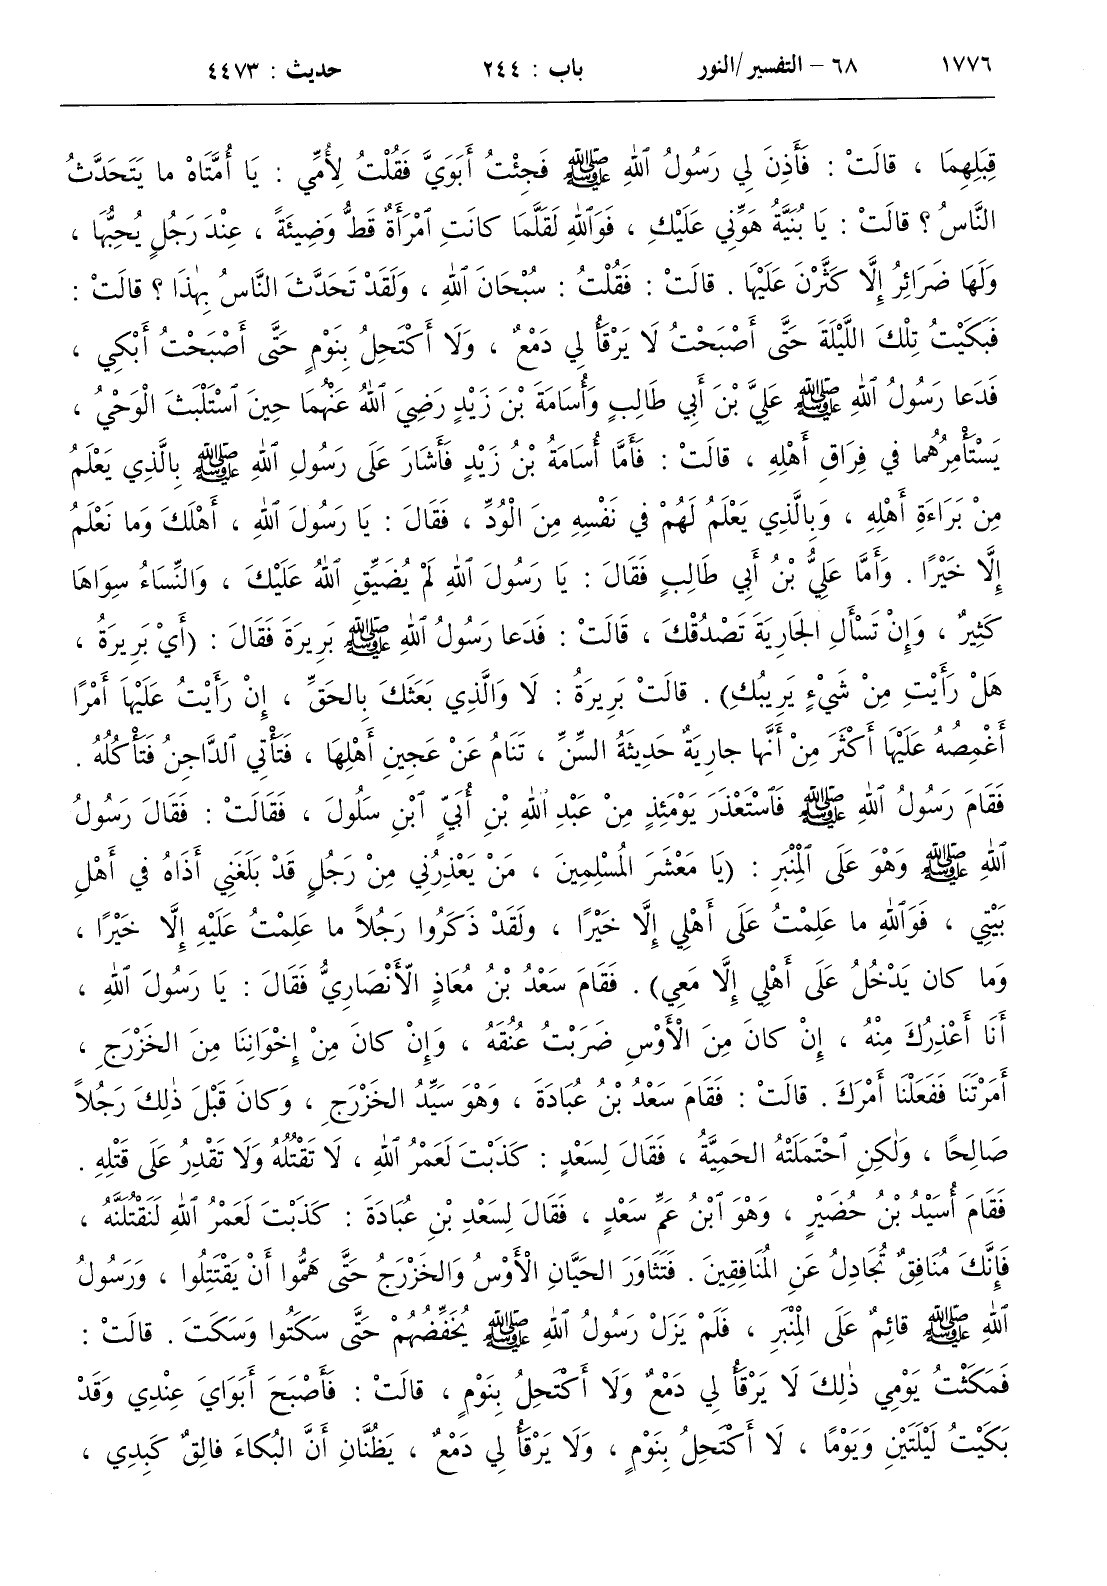 ١٧٧٦ ٦٨ – التفسير/النور باب : ٢٤٤ حديث : ٤٤٧٣
قِبَلِهِمَا ، قالَتْ : فَأَذِنَ لِي رَسُولُ ٱللهِ ﷺ فَجِئْتُ أَبَوَيَّ فَقُلْتُ لِأُمِّي : يَا أُمَّتَاهْ ما يَتَحَدَّثُ
النَّاسُ ؟ قالَتْ : يَا بُنَيَّةُ هَوِّنِي عَلَيْكِ ، فَوَٱللهِ لَقَلَّمَا كانَتِ ٱمْرَأَةٌ قَطُّ وَضِيئَةً ، عِنْدَ رَجُلٍ يُحِبُّهَا ،
وَلَهَا ضَرَائِرُ إِلَّا كَثَّرْنَ عَلَيْهَا . قالَتْ : فَقُلْتُ : سُبْحَانَ ٱللهِ ، وَلَقَدْ تَحَدَّثَ النَّاسُ بِهٰذَا ؟ قالَتْ :
فَبَكَيْتُ تِلْكَ اللَّيْلَةَ حَتَّى أَصْبَحْتُ لَا يَرْقَأُ لِي دَمْعٌ ، وَلَا أَكْتَحِلُ بِنَوْمٍ حَتَّى أَصْبَحْتُ أَبْكِي ،
فَدَعا رَسُولُ ٱللهِ ﷺ عَلِيَّ بْنَ أَبِي طَالِبٍ وَأُسَامَةَ بْنَ زَيْدٍ رَضِيَ ٱللهُ عَنْهُمَا حِينَ ٱسْتَلْبَثَ الْوَحْيُ ،
يَسْتَأْمِرُهُما في فِرَاقِ أَهْلِهِ ، قالَتْ : فَأَمَّا أُسَامَةُ بْنُ زَيْدٍ فَأَشَارَ عَلَى رَسُولِ ٱللهِ ﷺ بِالَّذِي يَعْلَمُ
مِنْ بَرَاءَةِ أَهْلِهِ ، وَبِالَّذِي يَعْلَمُ لَهُمْ في نَفْسِهِ مِنَ الْوُدِّ ، فَقَالَ : يَا رَسُولَ ٱللهِ ، أَهْلَكَ وَما نَعْلَمُ
إِلَّا خَيْرًا . وَأَمَّا عَلِيُّ بْنُ أَبِي طَالِبٍ فَقَالَ : يَا رَسُولَ ٱللهِ لَمْ يُضَيِّقِ ٱللهُ عَلَيْكَ ، وَالنِّسَاءُ سِوَاهَا
كَثِيرٌ ، وَإِنْ تَسْأَلِ الجَارِيَةَ تَصْدُقْكَ ، قالَتْ : فَدَعا رَسُولُ ٱللهِ ﷺ بَرِيرَةَ فَقَالَ : (أَيْ بَرِيرَةُ ،
هَلْ رَأَيْتِ مِنْ شَيْءٍ يَرِيبُكِ) . قالَتْ بَرِيرَةُ : لَا وَالَّذِي بَعَثَكَ بِالحَقِّ ، إِنْ رَأَيْتُ عَلَيْهَا أَمْرًا
أَغْمِصُهُ عَلَيْهَا أَكْثَرَ مِنْ أَنَّهَا جارِيَةٌ حَدِيثَةُ السِّنِّ ، تَنَامُ عَنْ عَجِينِ أَهْلِهَا ، فَتَأْتِي الدَّاجِنُ فَتَأْكُلُهُ .
فَقَامَ رَسُولُ ٱللهِ ﷺ فَٱسْتَعْذَرَ يَوْمَئِذٍ مِنْ عَبْدِ ٱللهِ بْنِ أُبَيٍّ ٱبْنِ سَلُولَ ، فَقَالَتْ : فَقَالَ رَسُولُ
ٱللهِ ﷺ وَهْوَ عَلَى الْمِنْبَرِ : (يَا مَعْشَرَ المُسْلِمِينَ ، مَنْ يَعْذِرُنِي مِنْ رَجُلٍ قَدْ بَلَغَنِي أَذَاهُ في أَهْلِ
بَيْتِي ، فَوَٱللهِ ما عَلِمْتُ عَلَى أَهْلِي إِلَّا خَيْرًا ، وَلَقَدْ ذَكَرُوا رَجُلاً ما عَلِمْتُ عَلَيْهِ إِلَّا خَيْرًا ،
وَما كان يَدْخُلُ عَلَى أَهْلِي إِلَّا مَعِي) . فَقَامَ سَعْدُ بْنُ مُعَاذٍ الْأَنْصَارِيُّ فَقَالَ : يَا رَسُولَ ٱللهِ ،
أَنَا أَعْذِرُكَ مِنْهُ ، إِنْ كانَ مِنَ الْأَوْسِ ضَرَبْتُ عُنُقَهُ ، وَإِنْ كانَ مِنْ إِخْوَانِنَا مِنَ الخَزْرَجِ ،
أَمَرْتَنَا فَفَعَلْنَا أَمْرَكَ . قالَتْ : فَقَامَ سَعْدُ بْنُ عُبَادَةَ ، وَهْوَ سَيِّدُ الخَزْرَجِ ، وَكانَ قَبْلَ ذٰلِكَ رَجُلاً
صَالِحًا ، وَلٰكِنِ ٱحْتَمَلَتْهُ الحَمِيَّةُ ، فَقَالَ لِسَعْدٍ : كَذَبْتَ لَعَمْرُ ٱللهِ ، لَا تَقْتُلُهُ وَلَا تَقْدِرُ عَلَى قَتْلِهِ .
فَقَامَ أُسَيْدُ بْنُ حُضَيْرٍ ، وَهْوَ ٱبْنُ عَمِّ سَعْدٍ ، فَقَالَ لِسَعْدِ بْنِ عُبَادَةَ : كَذَبْتَ لَعَمْرُ ٱللهِ لَنَقْتُلَنَّهُ ،
فَإِنَّكَ مُنَافِقٌ تُجَادِلُ عَنِ المُنَافِقِينَ . فَتَثَاوَرَ الحَيَّانِ الْأَوْسُ وَالخَزْرَجُ حَتَّى هَمُّوا أَنْ يَقْتَتِلُوا ، وَرَسُولُ
ٱللهِ ﷺ قائِمٌ عَلَى الْمِنْبَرِ ، فَلَمْ يَزَلْ رَسُولُ ٱللهِ ﷺ يُخَفِّضُهُمْ حَتَّى سَكَتُوا وَسَكَتَ . قالَتْ :
فَمَكَثْتُ يَوْمِي ذٰلِكَ لَا يَرْقَأُ لِي دَمْعٌ وَلَا أَكْتَحِلُ بِنَوْمٍ ، قالَتْ : فَأَصْبَحَ أَبَوَايَ عِنْدِي وَقَدْ
بَكَيْتُ لَيْلَتَيْنِ وَيَوْمًا ، لَا أَكْتَحِلُ بِنَوْمٍ ، وَلَا يَرْقَأُ لِي دَمْعٌ ، يَظُنَّانِ أَنَّ الْبُكاءَ فالِقٌ كَبِدِي ،